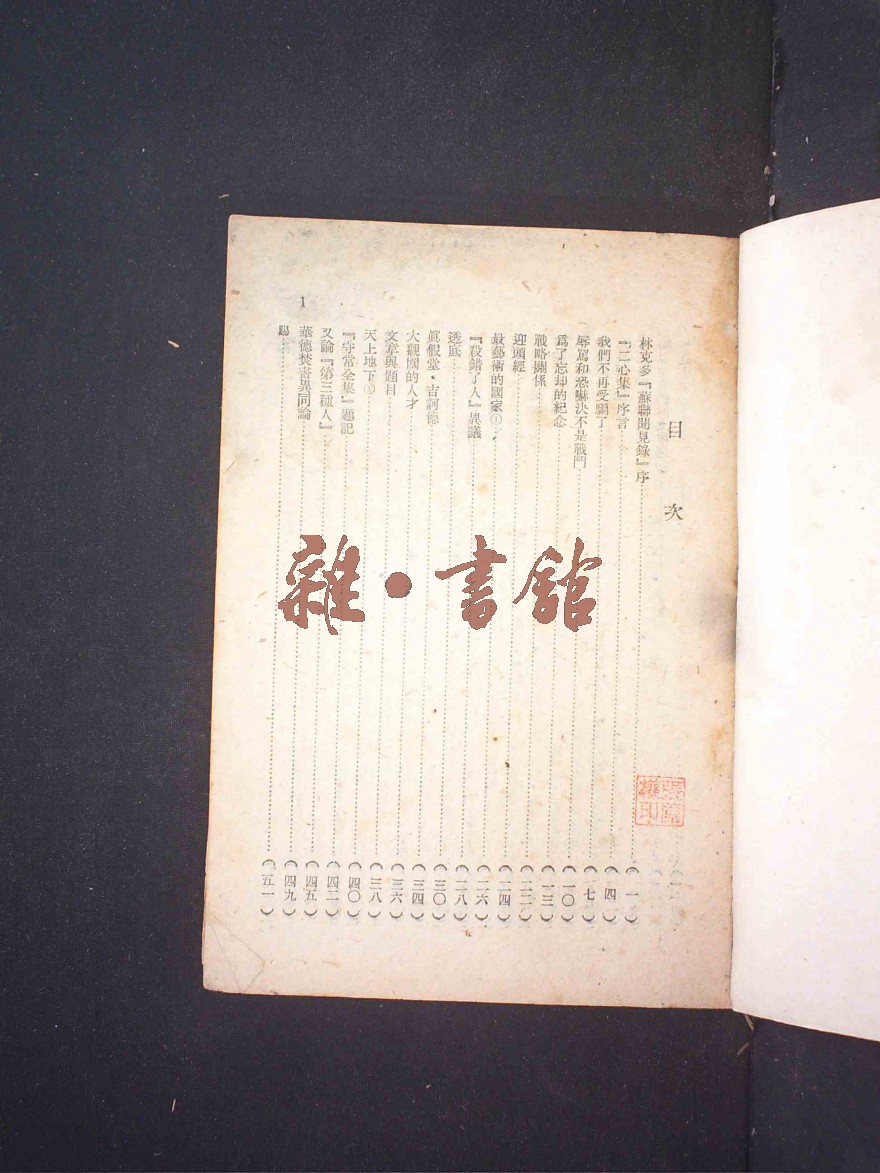 目次
林克多『蘇聯聞見錄』序……(一)
『二心集』序言……(四)
我們不再受騙了……(七)
辱罵和恐嚇決不是戰鬥……(一〇)
爲了忘却的紀念……(一三)
戰略關係……(二二)
迎頭經……(二四)
最藝術的國家①……(二六)
『殺錯了人』異議……(二八)
透底……(三〇)
眞假堂・吉訶德……(三四)
大觀園的人才……(三六)
文章與題目……(三八)
天上地下①……(四〇)
『守常全集』題記……(四二)
又論『第三種人』……(四五)
華德焚書異同論……(四九)
踢……(五一)
1
雜・書館